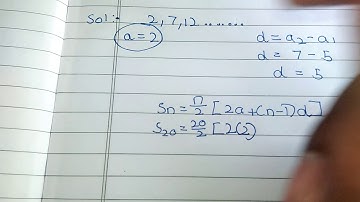 Sol:- 2,7,12.......
a=2
d=a₂-a₁
d=7-5
d=5
Sn=n/2[2a+(n-1)d]
S₂₀=20/2[2(2)